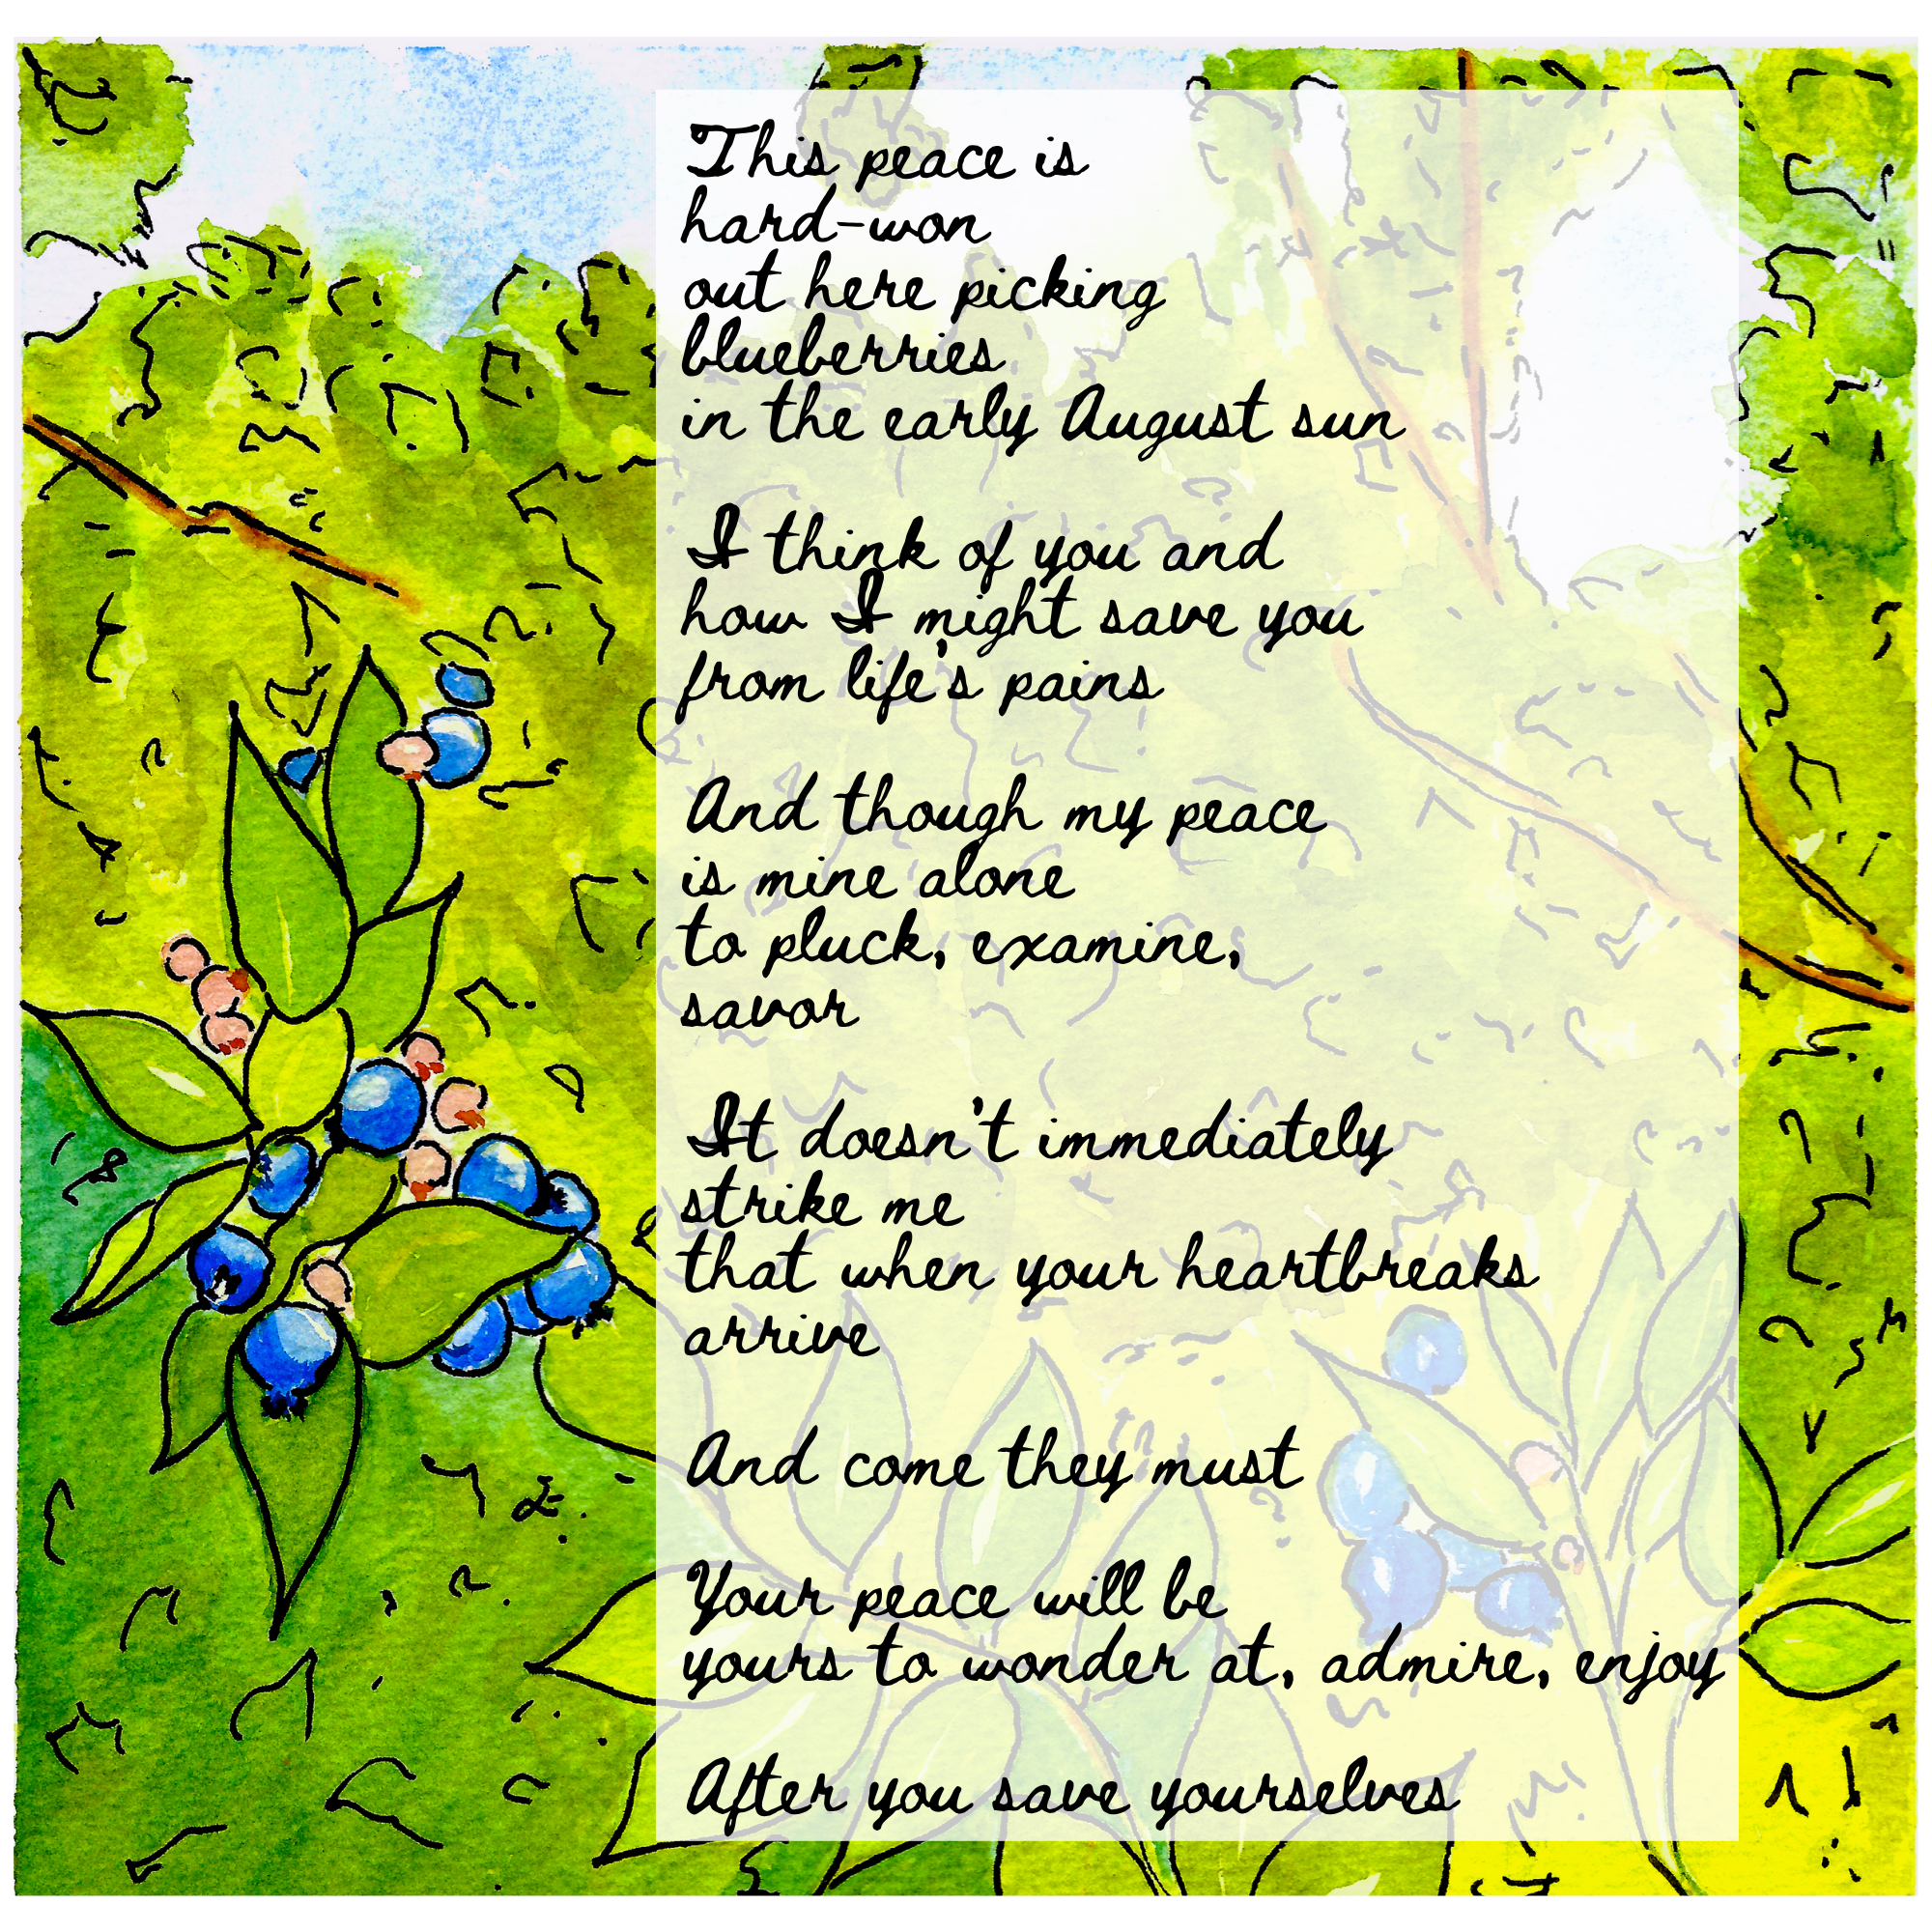 This peace is
hard-won
out here picking
blueberries
in the early August sun
I think of you and
how I might save you
from life's pains
And though my peace
is mine alone
to pluck, examine,
savor
It doesn't immediately
strike me
that when your heartbreaks
arrive
And come they must
Your peace will be
yours to wonder at, admire, enjoy
After you save yourselves